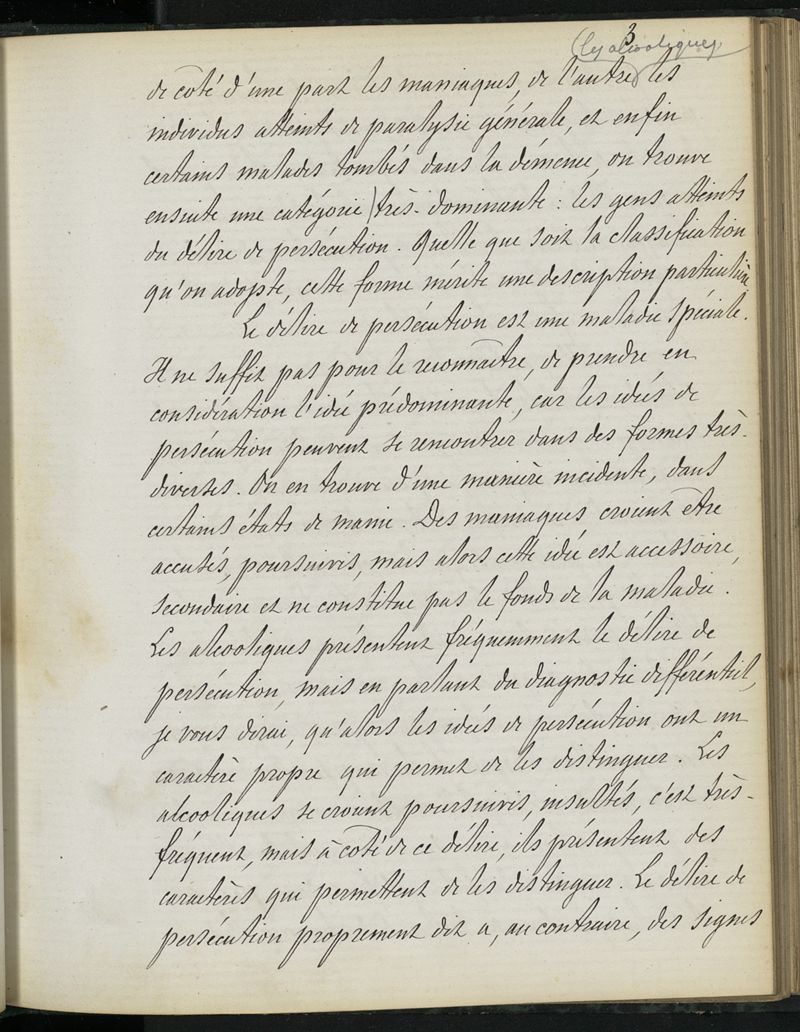 3
les alcooliques,
de coté d'une part les maniaques, de l'autre les
individus atteints de paralysie générale, et enfin
certains malades tombés dans la démence, on trouve
ensuite une catégorie très-dominante : les gens atteints
du délire de persécution. Quelle que soit la classification
qu'on adopte, cette forme mérite une description particulière
Le délire de persécution est une maladie spéciale.
Il ne suffit pas pour le reconnaître, de prendre en
considération l'idée prédominante, car les idées de
persécution peuvent se rencontrer dans des formes très-
diverses. On en trouve d'une manière incidente, dans
certains états de manie. Des maniaques croient être
accusés, poursuivis, mais alors cette idée est accessoire,
secondaire et ne constitue pas le fonds de la maladie.
Les alcooliques présentent fréquemment le délire de
persécution, mais en parlant du diagnostic différentiel,
je vous dirai, qu'alors les idées de persécution ont un
caractère propre qui permet de les distinguer. Les
alcooliques se croient poursuivis, insultés, c'est très-
fréquent, mais à coté de ce délire, ils présentent des
caractères qui permettent de les distinguer. Le délire de
persécution proprement dit a, au contraire, des signes